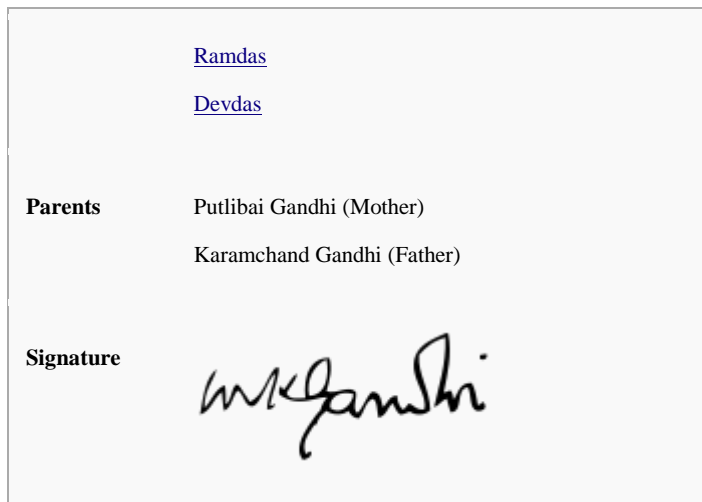 Ramdas
Devdas
Parents Putlibai Gandhi (Mother)
Karamchand Gandhi (Father)
Signature
MKGandhi